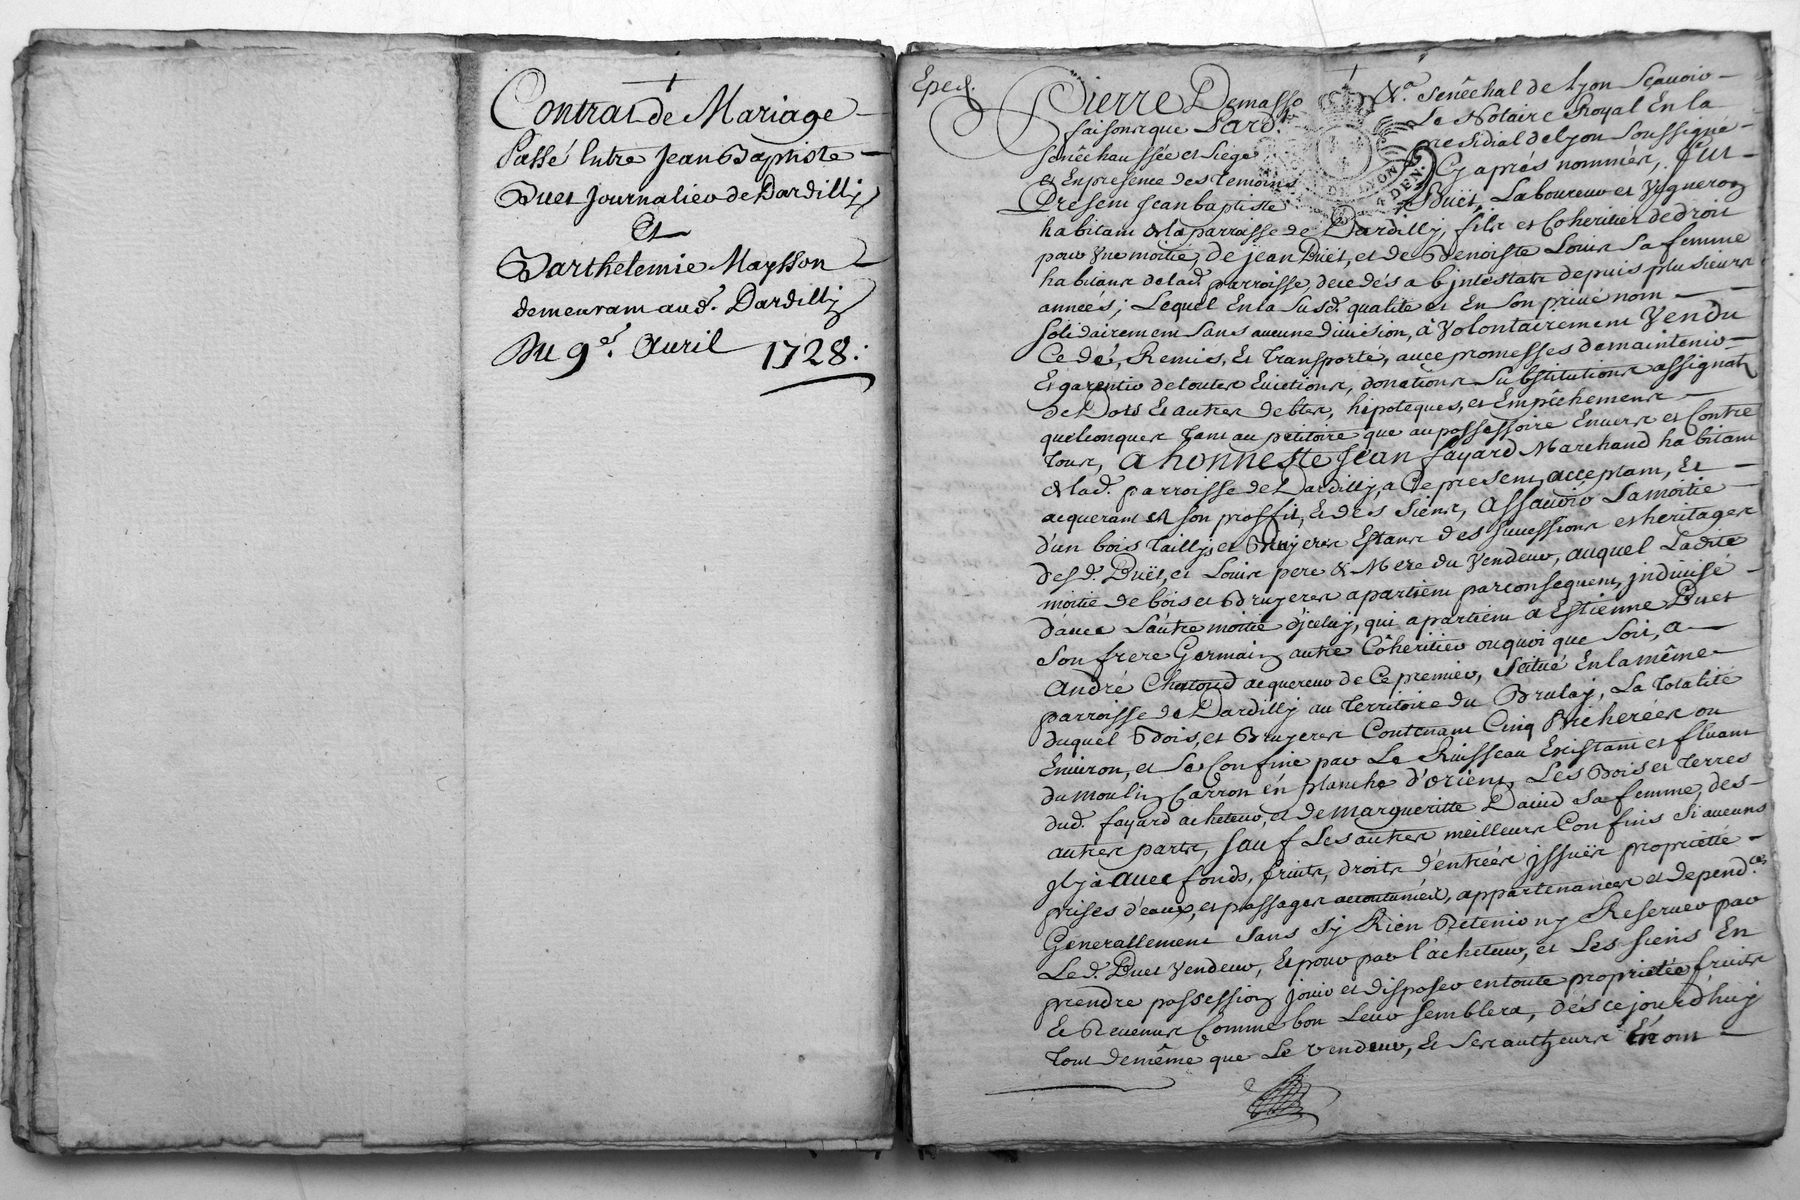 Contrat de Mariage
Passé Entre Jean Baptiste
Buet Journalier de Dardilly
Et
Barthelemie Maysson
demeurant aud. Dardilly
Du 9e. Avril 1728.
Exped.
Pierre Demasso Sr. Senêchal de Lyon Sçavoir
faisons que Pard. Le Notaire Royal En la
senêchaussée et Siege presidial de Lyon Soussigné
et En presence des temoins Cy aprés nommés, fut
Present Jean baptiste Buët, Laboureur et Vigneron
habitant de la parroisse de Dardilly, fils et Coheritier de droit
pour Une moitié, de jean Buët, et de Benoiste Louis Sa femme
habitans de lad. parroisse, decedés ab jntestats depuis plusieurs
années; Lequel En la Susd. qualité et En Son privé nom
solidairement Sans aucune division, à Volontairement Vendu
Cedé, Remis, Et transporté, avec promesses de maintenir
Et garentir de toutes Evictions, donations Substitutions assignats
de Dots Et autres debtes, hipoteques, et Empêchements
quelconques tant au petitoire que au possessoire Envers et Contre
tous, a honneste Jean fayard Marchand habitant
de lad. parroisse de Dardilly, a Ce present, acceptant, Et
acquerant A Son proffit, Et des Siens, Assavoir La moitié
d'un bois tailly, et Bruyeres Estans des Successions et heritages
desd. Buët, et Louis pere & Mere du Vendeur, auquel Ladite
moitié de bois et Bruyeres apartient par consequent, jndivisé
d'avec L'autre moitié d'jceluy, qui apartient a Estienne Buet
Son frere Germain autre Côheritier ou quoi que Soit, a
André acquereur de Ce premier, Scitué En la même
parroisse de Dardilly au territoire du Brulay, La totalité
duquel Bois, et Bruyeres Contenant Cinq Bicherées ou
Environ, et Se Confine par Le Ruisseau Existant et fluant
du moulin Carron en planche d'orient, Les Bois et terres
dud. fayard acheteur, et de margueritte David Sa femme, des
autres parts, Sauf Les autres meilleurs Confins Si aucuns
Jl y à avec fonds, fruits, droits d'entrées jssuës proprieté
prises d'eaux, et passages accoutumés, appartenances et depend.ces
Generallement Sans Sy Rien Retenir ny Reserver par
Led. Buet Vendeur, Et pour par l'acheteur, et Les Siens En
prendre possession jouir et disposer en toute proprieté fruits
Et Revenus Comme bon Leur Semblera, dés cejourd'huy
tout de même que Le Vendeur, Et Ses autheurs En ont